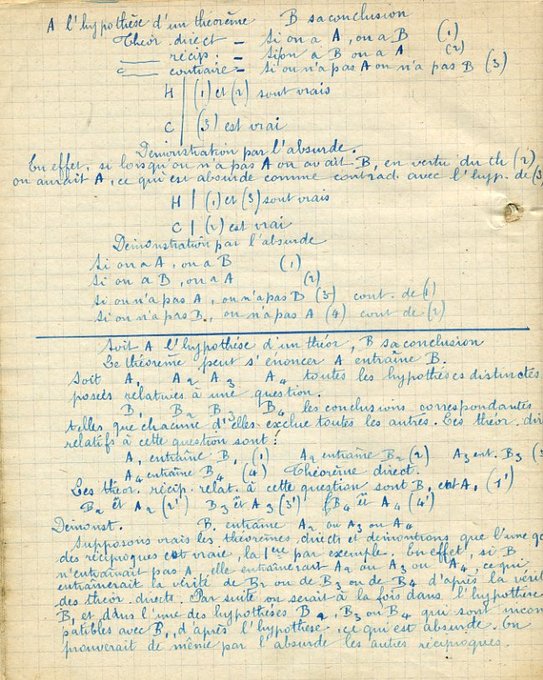 A l'hypothèse d'un théorème B sa conclusion
Théor. direct = Si on a A, on a B (1)
récip. = Si on a B on a A (2)
contraire = Si on n'a pas A on n'a pas B (3)
H | (1) et (2) sont vrais
C | (3) est vrai
Démonstration par l'absurde.
En effet, si lorsqu'on n'a pas A on avait B, en vertu du th (2)
on aurait A, ce qui est absurde comme contrad. avec l'hyp. de (3
H | (1) et (3) sont vrais
C | (2) est vrai
Démonstration par l'absurde
Si on a A, on a B (1)
Si on a B, on a A (2)
Si on n'a pas A, on n'a pas B (3) cont. de (1)
Si on n'a pas B, on n'a pas A (4) cont de (2)
Soit A l'hypothèse d'un théor, B sa conclusion
Le théorème peut s'énoncer A entraîne B.
Soit A1 A2 A3 A4 toutes les hypothèses distinctes
posées relatives à une question.
B1 B2 B3 B4 les conclusions correspondantes
telles que chacune d'elles exclue toutes les autres. Les théor. dir
relatifs à cette question sont :
A1 entraîne B1 (1) A2 entraîne B2 (2) A3 ent. B3 (3
A4 entraîne B4 (4) Théorème direct.
Les théor. récip. relat. à cette question sont B1 ent A1 (1')
B2 ët A2 (2') B3 ët A3 (3') B4 ët A4 (4')
Démonst. B1 entraîne A2 ou A3 ou A4
Supposons vrais les théorèmes directs et démontrons que l'une qc
des réciproques est vraie, la 1ère par exemple. En effet, si B
n'entraînait pas A, elle entraînerait A2 ou A3 ou A4, ce qui
entraînerait la vérité de B2 ou de B3 ou de B4 d'après la véri
des théor. directs. Par suite on serait à la fois dans l'hypothèse
B1 et dans l'une des hypothèses B2, B3 ou B4 qui sont incom
patibles avec B1, d'après l'hypothèse, ce qui est absurde. On
prouverait de même par l'absurde les autres réciproques.